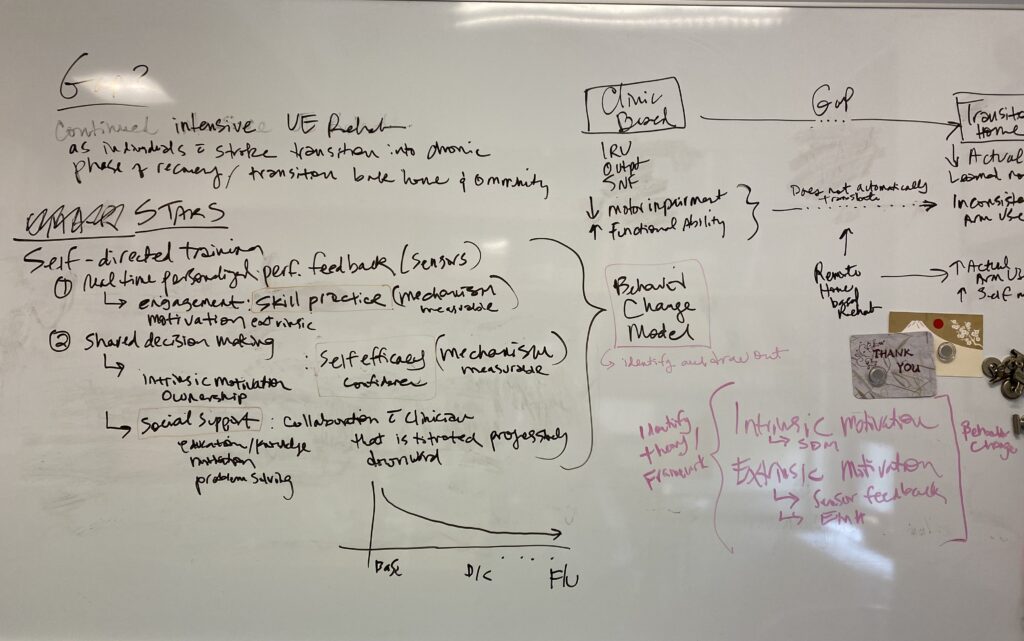 Gap?
Continued intensive UE Rehab
as individuals c̄ stroke transition into chronic
phase of recovery / transition back home & community
STARS
Self-directed training
① real time personalized perf. feedback (sensors)
↳ engagement: skill practice (mechanism
measurable)
motivation extrinsic
② Shared decision making
: Self efficacy (mechanism
confidence measurable)
↳ intrinsic motivation
ownership
↳ Social Support : collaboration c̄ clinician
that is titrated progressively
downward
education/knowledge
problem solving
Base D/C F/U
Clinic
Based
IRU
Outpt
SNF
↓ motor impairment
↑ Functional Ability
GAP
Does not automatically
translate
Transiti
Home
↓ Actual
Learned no
Inconsiste
Arm Use
Remote
Home
based
Rehab
↑ Actual
Arm Us
↑ Self m
Behavior
Change
Model
↳ identify and draw out
THANK
YOU
Identify
theory/
Framework
Intrinsic motivation
↳ SDM
Extrinsic motivation
↳ Sensor feedback
↳ EMA
Behavior
Change